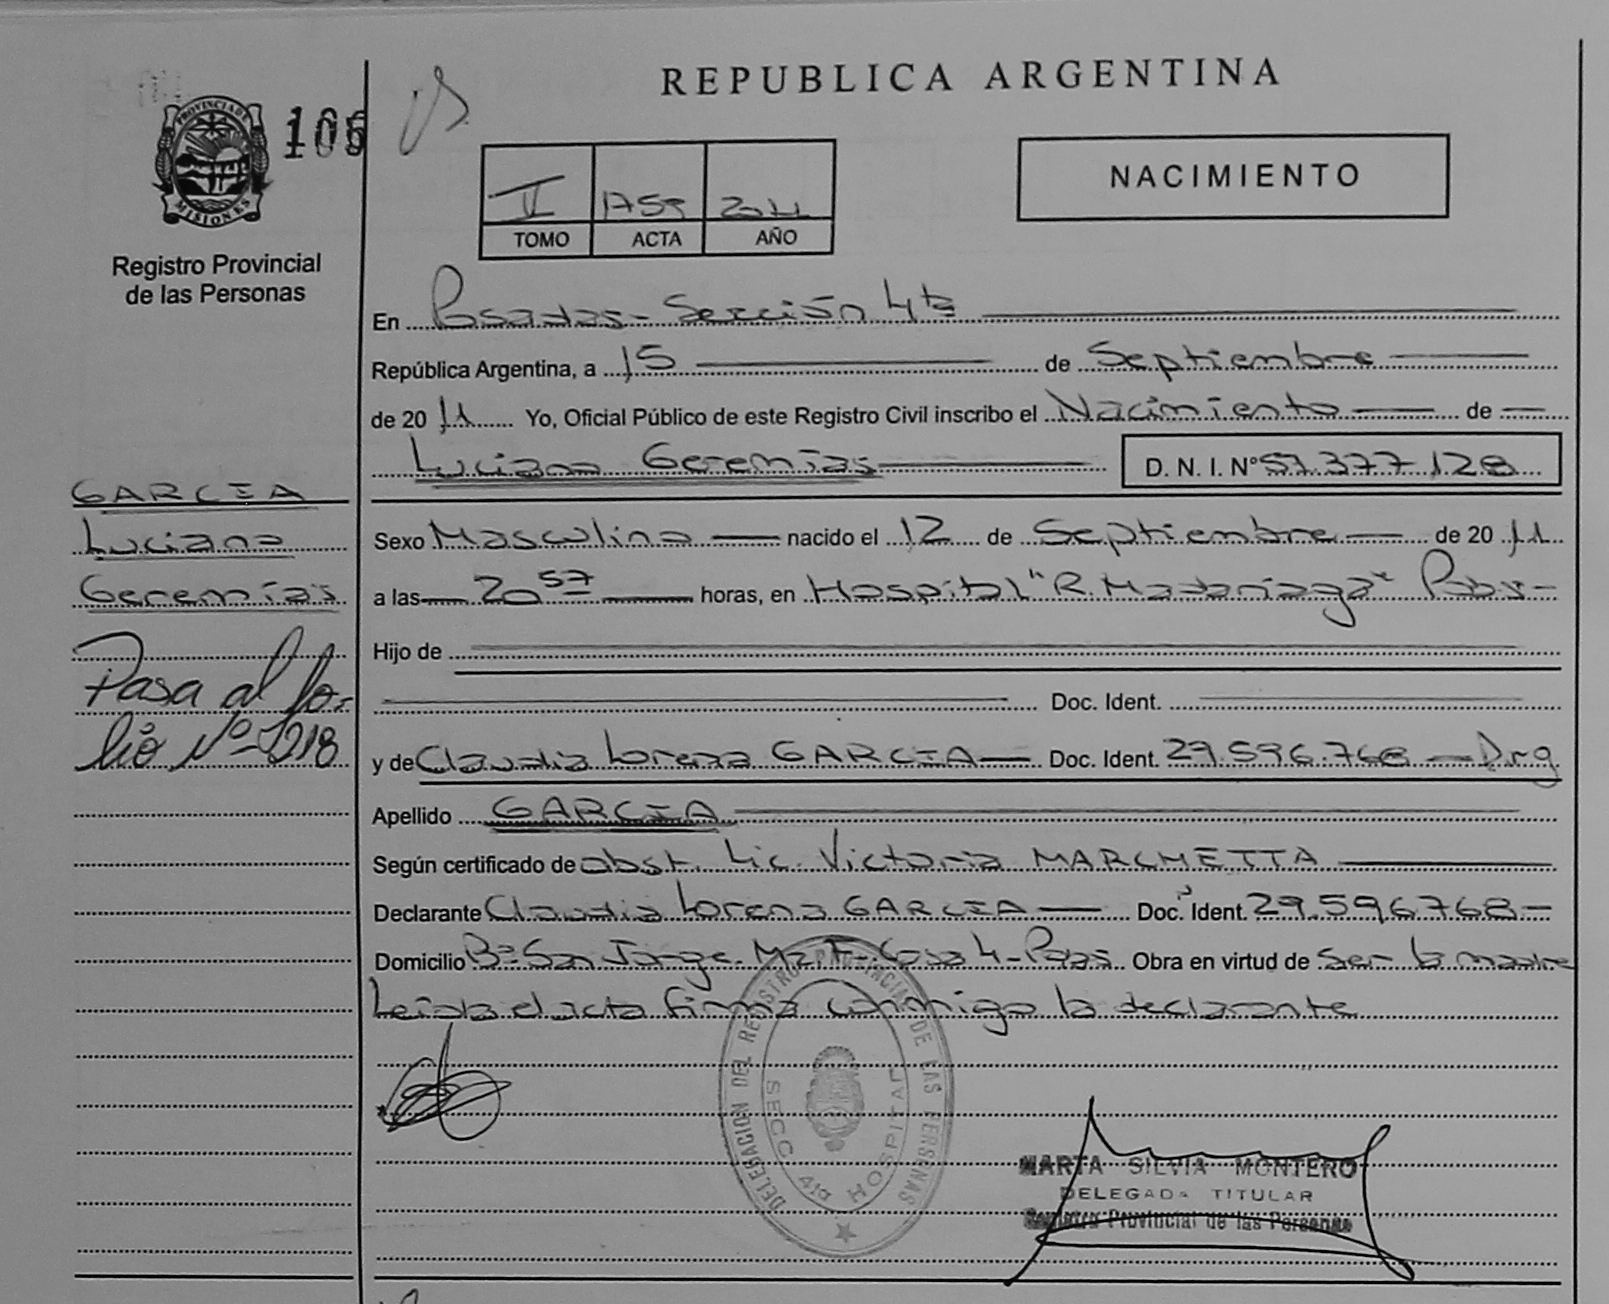 REPUBLICA ARGENTINA
PROVINCIA DE MISIONES
Registro Provincial
de las Personas
II 1759 2011
TOMO ACTA AÑO
NACIMIENTO
En Posadas - Sección 4ta
República Argentina, a 15 de Septiembre
de 2011 Yo, Oficial Público de este Registro Civil inscribo el Nacimiento de
Luciano Geremías D. N. I. Nº 51.377.128
GARCIA
Luciano
Geremías
Pasa al fo-
lio Nº 1218
Sexo Masculino nacido el 12 de Septiembre de 2011
a las 20 57 horas, en Hospital "R. Madariaga" Pdas -
Hijo de
Doc. Ident.
y de Claudia Lorena GARCIA Doc. Ident. 29.596.768 - Arg
Apellido GARCIA
Según certificado de obst. Lic. Victoria MARCHETTA
Declarante Claudia Lorena GARCIA Doc. Ident. 29.596.768 -
Domicilio Bº San Jorge - Mz. F - Casa 4 - Pdas. Obra en virtud de ser la madre
Leída el acta firma conmigo la declarante
DELEGACION DEL REGISTRO PROVINCIAL DE LAS PERSONAS
SECC 4ta HOSPITAL
MARTA SILVIA MONTERO
DELEGADA TITULAR
Registro Provincial de las Personas